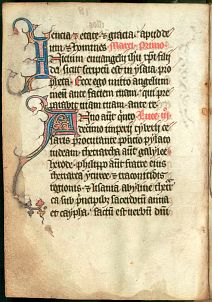 iencia et etate et gratia apud de
um et homines Marci Primo
Inicium euuangelii ihu xpi filii
dei sicut scriptum est in ysaia pro
pheta Ecce ego mitto angelum
meum ante faciem tuam qui pre
parabit uiam tuam ante te
Anno aut quinto
decimo imperii tyberii ce
saris procurante poncio pylato
iudeam thetrarcha aut galylee
herode philippo aut fratre eius
thetrarcha yturee et traconitidis
regionis et lisania abyline thetrar
ca sub principibus sacerdotum anna
et caypha factum est uerbum dni